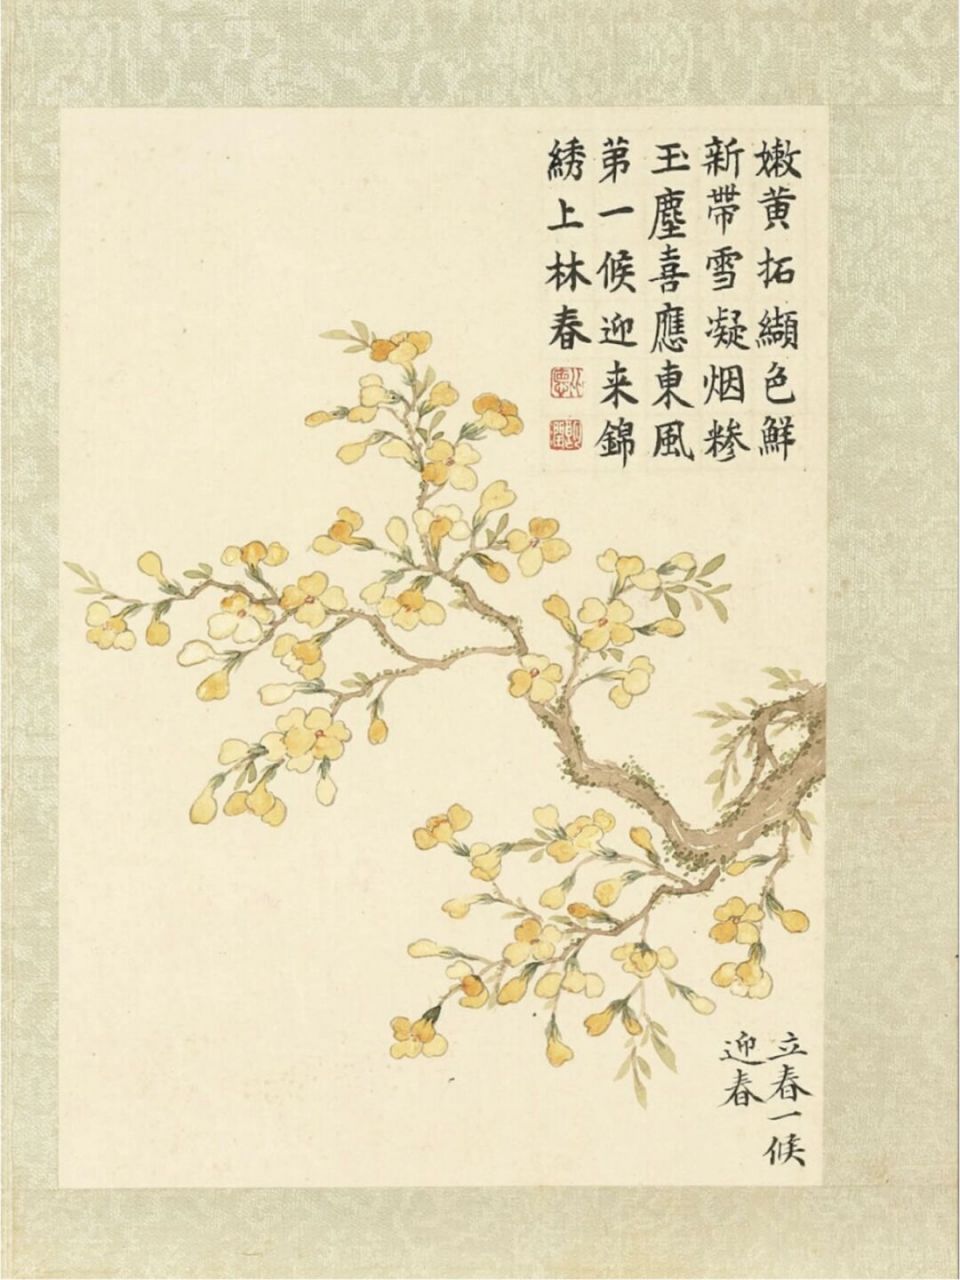 嫩黄拓纈色鮮
新帶雪凝烟糁
玉塵喜應東風
第一候迎来錦
綉上林春
立春一候
迎春